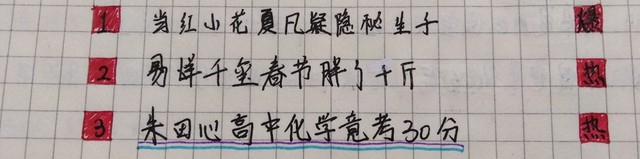 1 当红小花夏凡疑隐秘生子 爆
2 易烊千玺春节胖了十斤 热
3 朱田心高中化学竟考30分 热